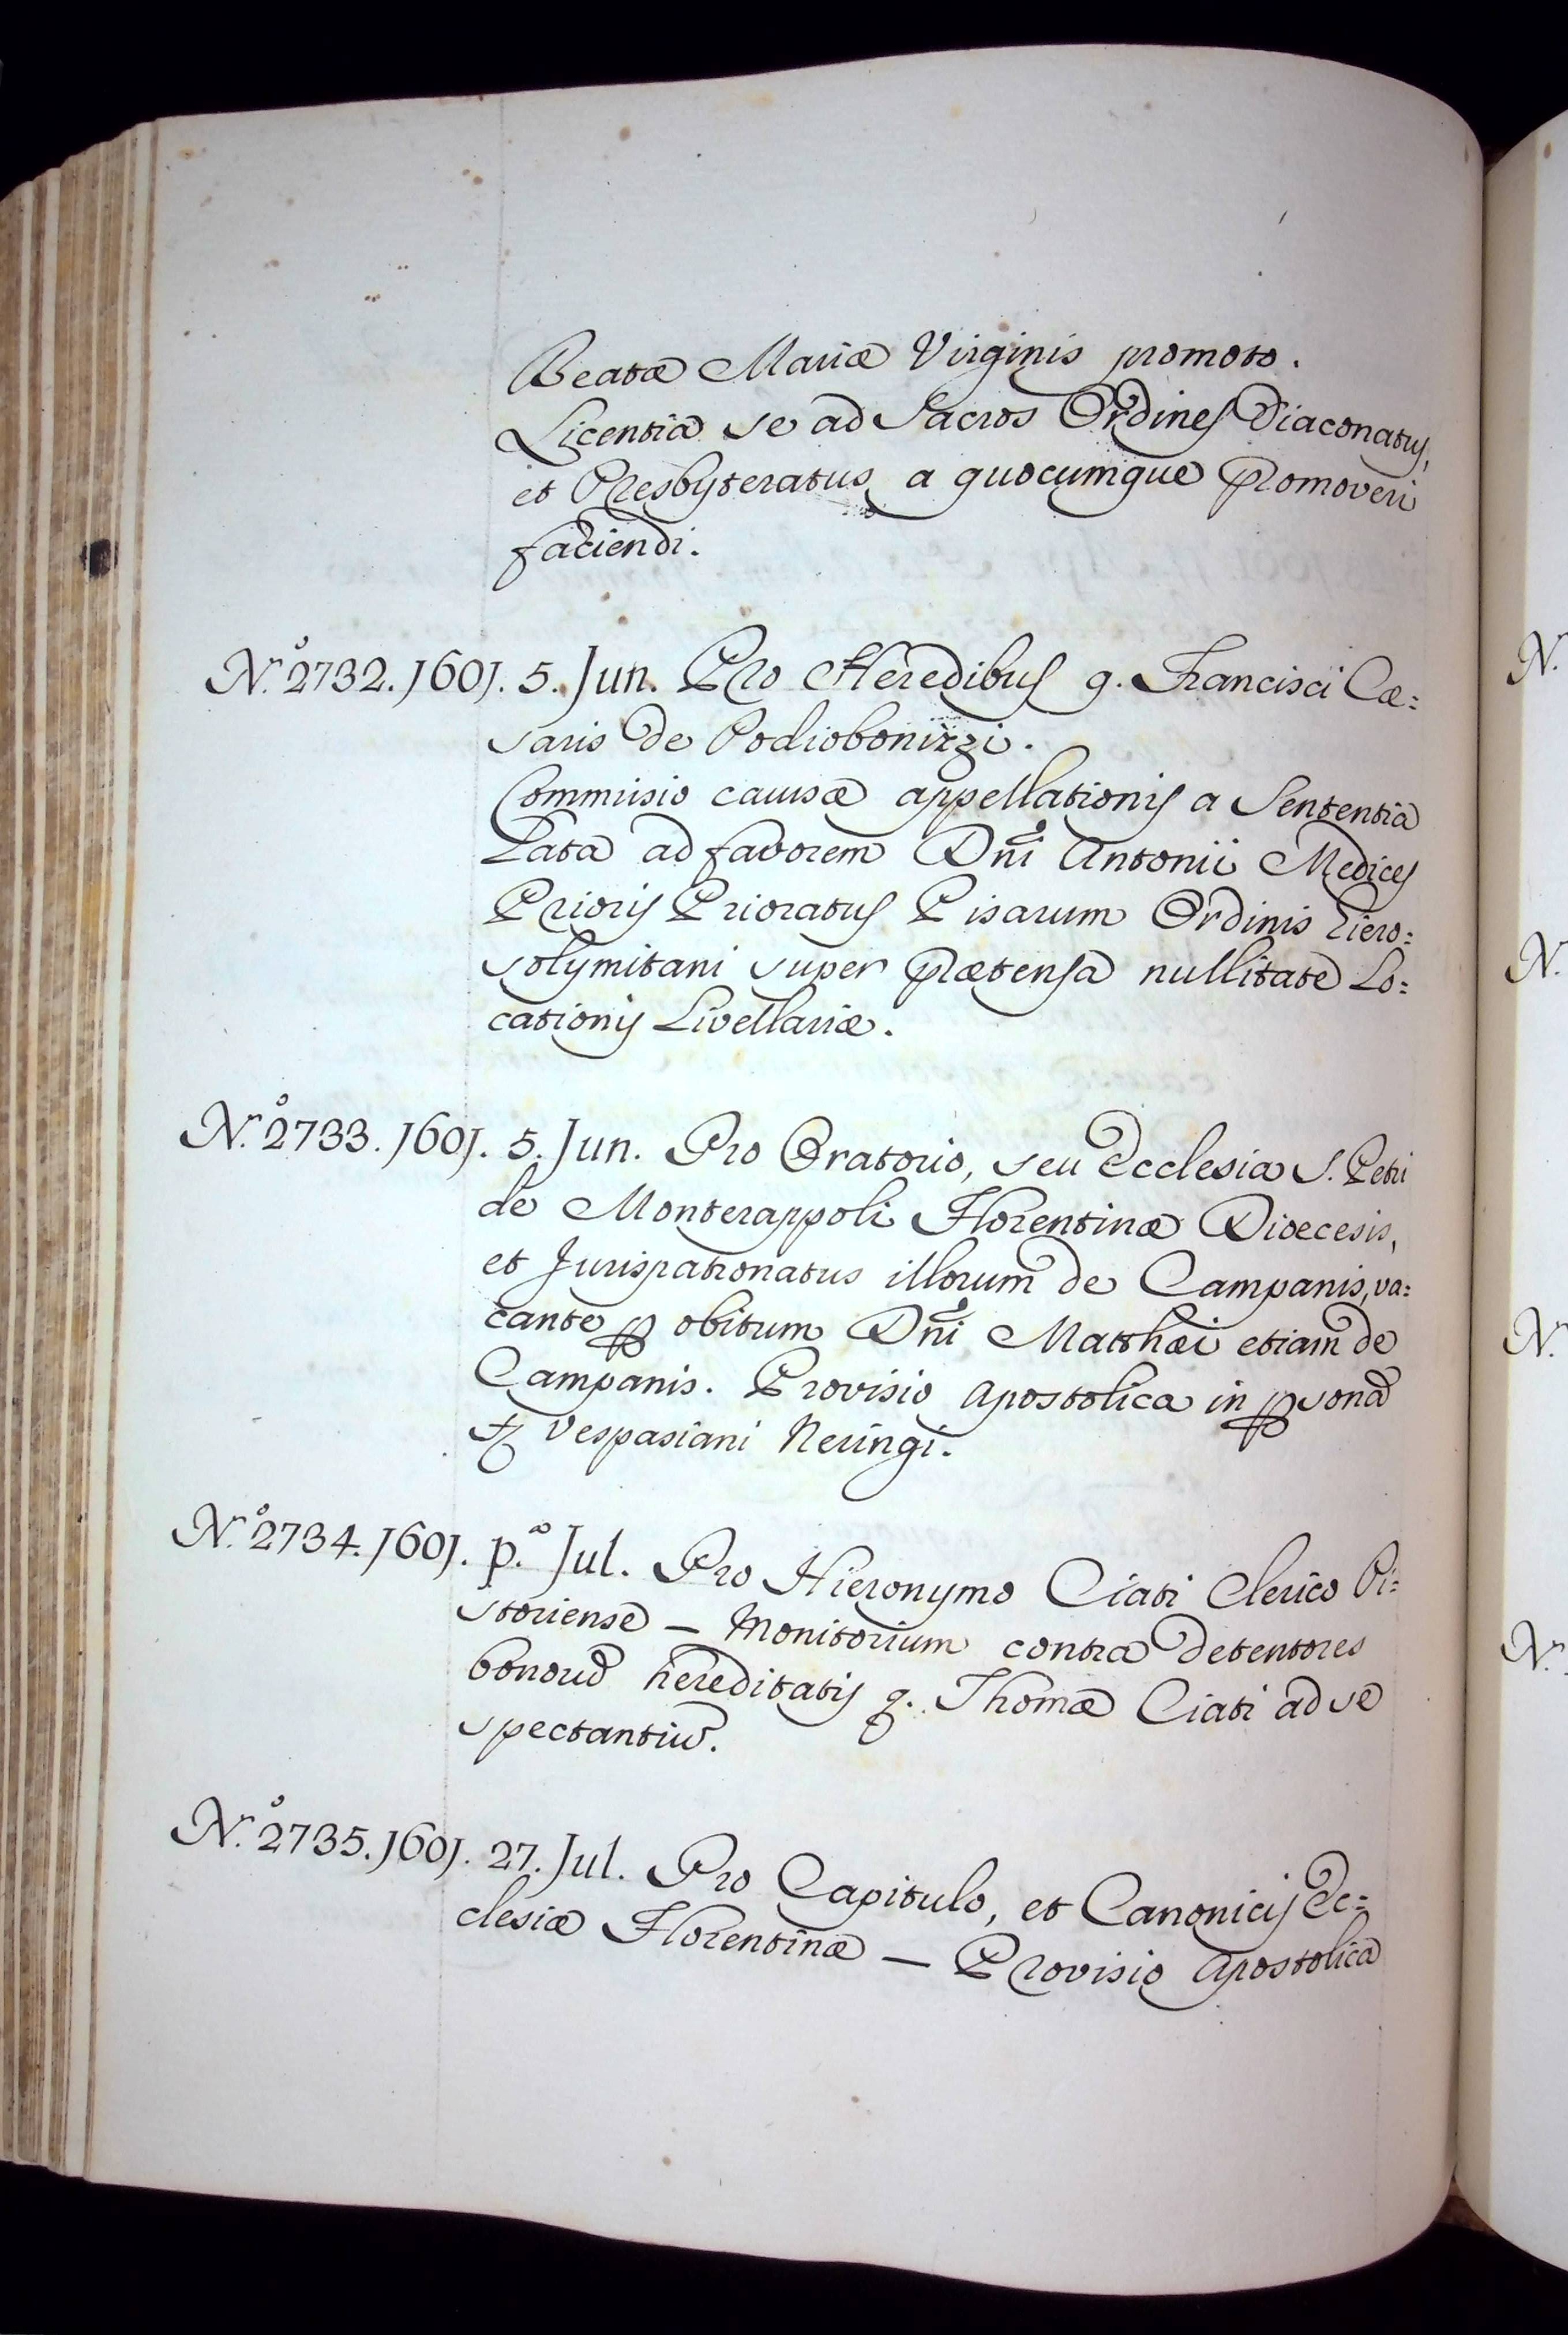 Beatæ Mariæ Virginis promoto.
Licentia se ad Sacros Ordines Diaconatus,
et Presbyteratus a quocumque promoveri
faciendi.
N.º 2732. 1601. 5. Jun. Pro Heredibus q. Francisci Cæ=
saris de Podiobonizzi.
Commissio causæ appellationis a Sententia
Lata ad favorem Dñi Antonii Medices
Prioris Prioratus Pisarum Ordinis Hiero=
solymitani super prætensa nullitate Lo=
cationis Livellariæ.
N.º 2733. 1601. 5. Jun. Pro Oratorio, seu Ecclesia S. Petri
de Monterappoli Florentinæ Diœcesis,
et Jurispatronatus illorum de Campanis, va=
cante ꝑ obitum Dñi Matthæi etiam de
Campanis. Provisio Apostolica in ꝑsona
Vespasiani Neringi.
N.º 2734. 1601. p.º Jul. Pro Hieronymo Ciati Clerico Pi=
storiense — Monitorium contra detentores
bonorū hereditatis q. Thomæ Ciati ad se
spectantiū.
N.º 2735. 1601. 27. Jul. Pro Capitulo, et Canonicis Ec=
clesiæ Florentinæ — Provisio Apostolica
N.
N.
N.
N.